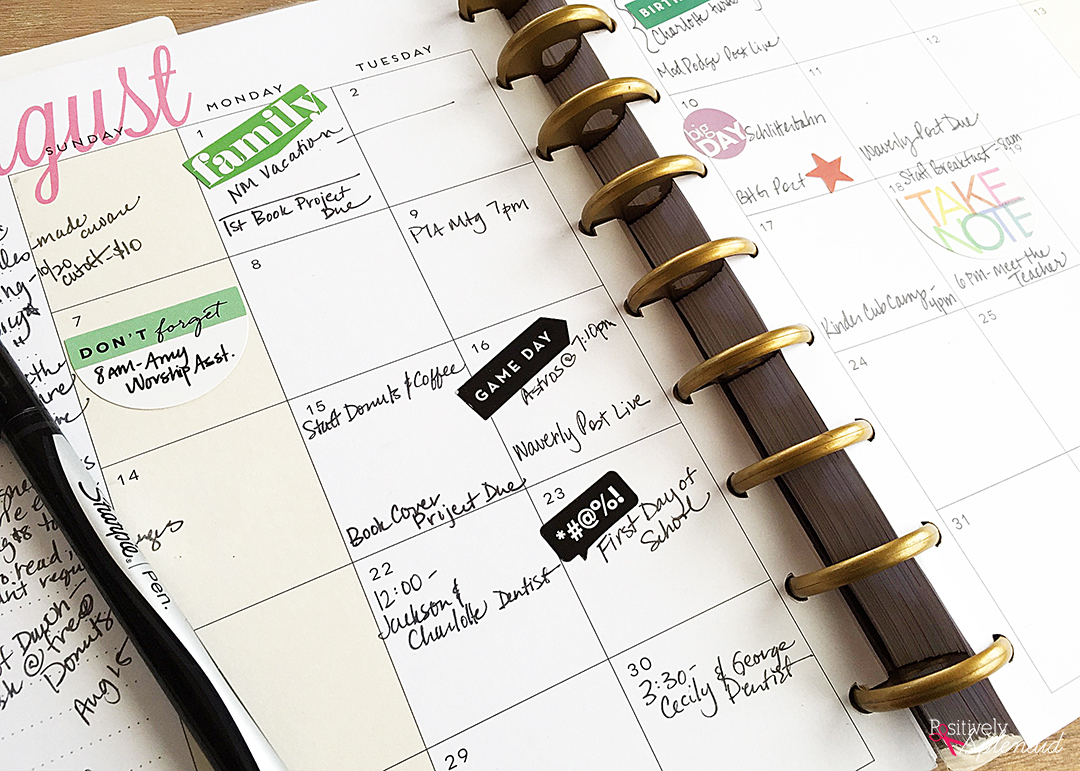 gust
SUNDAY
MONDAY
TUESDAY
made aware
10/20
cutoff-$10
1
family
NM Vacation
1st Book Project
Due
2
7
DON'T forget
8AM-Amy
Worship Asst.
8
9
PTA Mtg 7pm
14
15
Staff Donuts & Coffee
Book Cover
Project Due
16
GAME DAY
Astros @ 7:10pm
Waverly Post Live
22
12:00-
Jackson &
Charlotte Dentist
23
*#@%!
First Day of
School
29
30
3:30-
Cecily & George
Dentist
Donuts
Aug 15
Sharpie. Pen.
BIRTH
Charlotte turns
Mod Podge Post Live
10
big
DAY
Schlitterbahn
BHG Post
11
Waverly Post Due
12
13
17
Kinder Cub Camp-
4pm
18
Staff Breakfast-8am
TAKE
NOTE
6PM-meet the
Teacher
19
24
25
31
Positively
Splendid